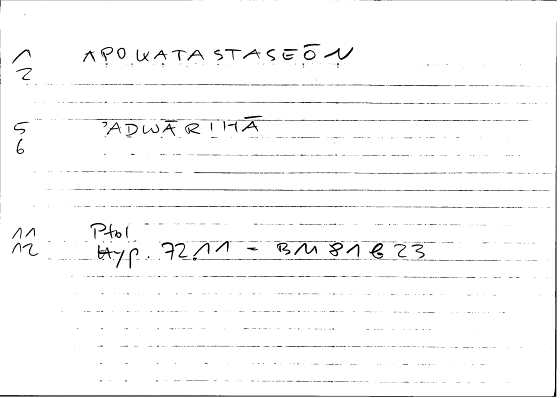 1 APOKATASTASEŌN
2
5 'ADWĀRIHĀ
6
11 Ptol
12 Hyp. 72,11 = BM 81 b 23